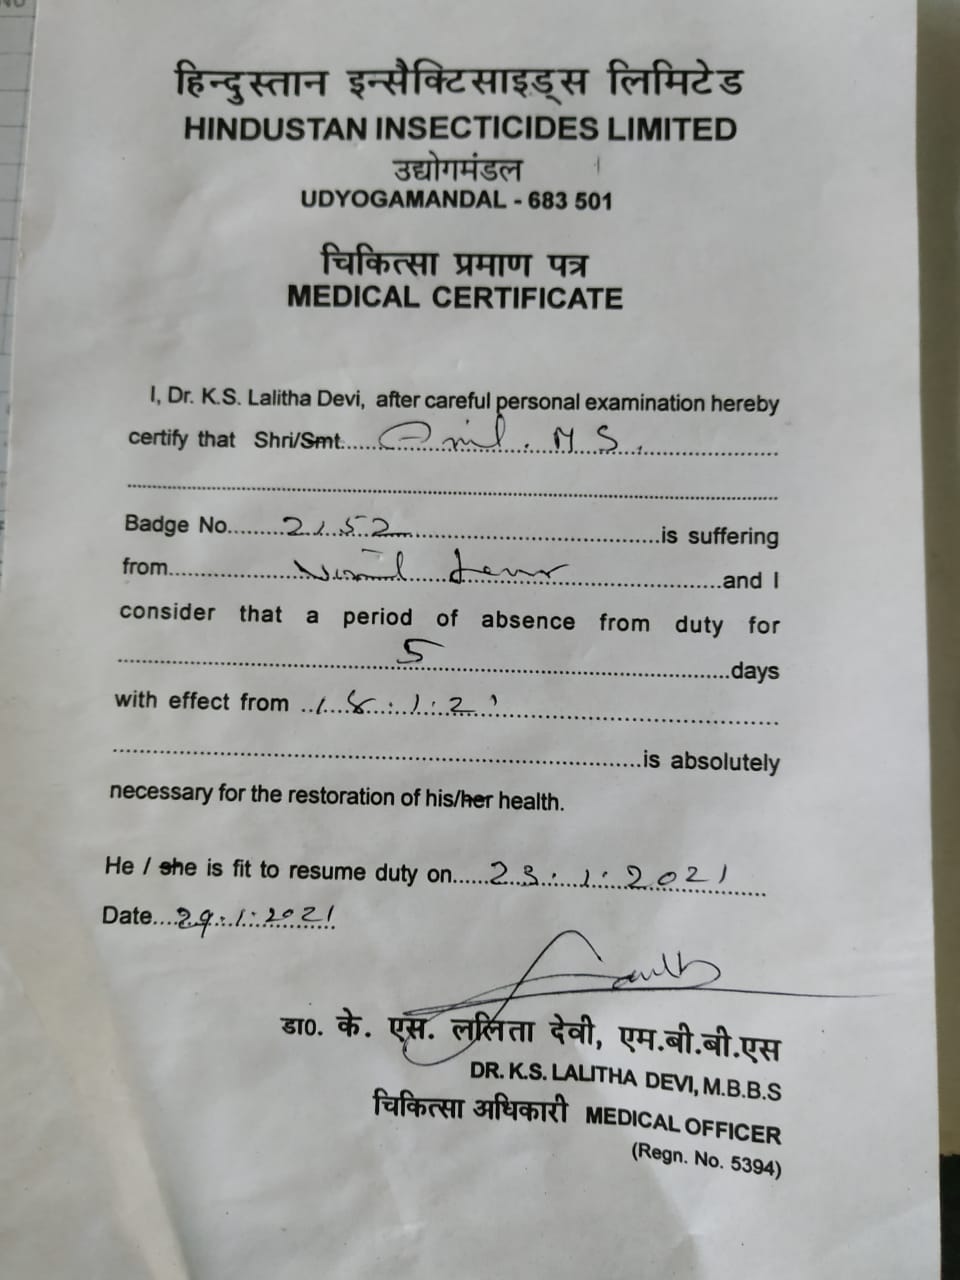 हिन्दुस्तान इन्सैक्टिसाइड्स लिमिटेड
HINDUSTAN INSECTICIDES LIMITED
उद्योगमंडल
UDYOGAMANDAL - 683 501
चिकित्सा प्रमाण पत्र
MEDICAL CERTIFICATE
I, Dr. K.S. Lalitha Devi, after careful personal examination hereby
certify that Shri/Smt. M.S.
Badge No. 2152 is suffering
from and I
consider that a period of absence from duty for
5 days
with effect from 18.1.21
is absolutely
necessary for the restoration of his/her health.
He / she is fit to resume duty on 23.1.2021
Date 29.1.2021
डा०. के. एस. ललिता देवी, एम.बी.बी.एस
DR. K.S. LALITHA DEVI, M.B.B.S
चिकित्सा अधिकारी MEDICAL OFFICER
(Regn. No. 5394)